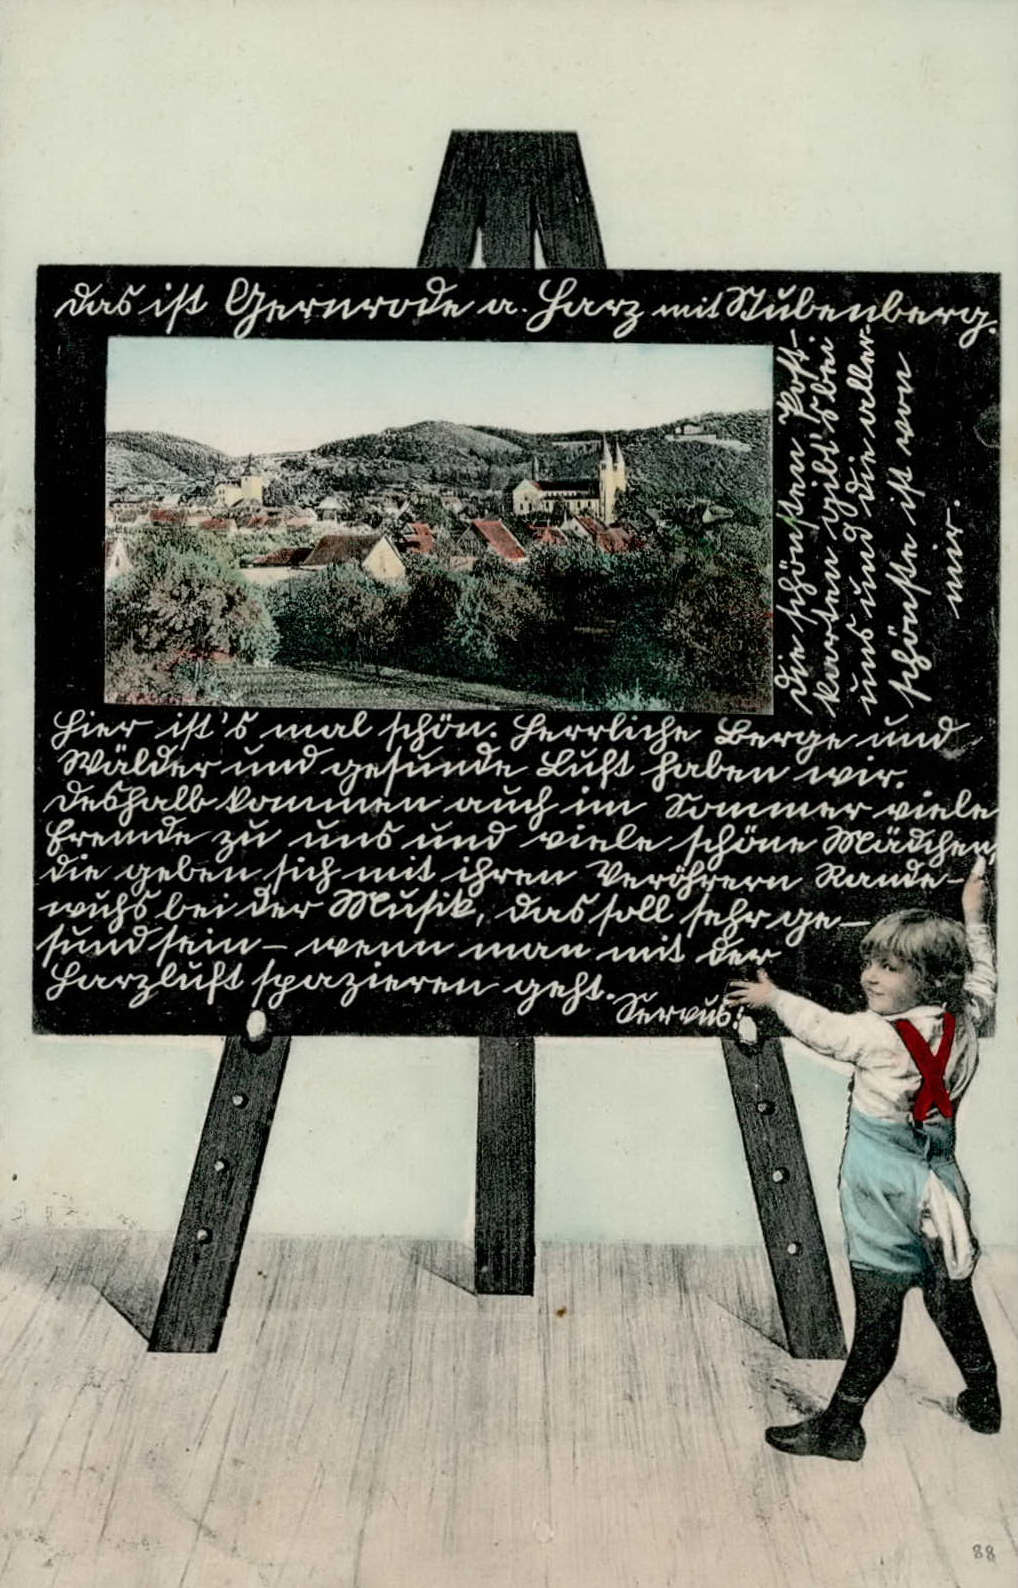 Das ist Gernrode a. Harz mit Stubenberg.
Die schönsten Post-
karten gibt's bei
uns und die aller-
schönste ist von
mir.
Hier ist's mal schön. Herrliche Berge und
Wälder und gesunde Luft haben wir.
Deshalb kommen auch im Sommer viele
Fremde zu uns und viele schöne Mädchen,
die geben sich mit ihren Veröhrern Rande-
wuhs bei der Musik, das soll sehr ge-
sund sein - wenn man mit der
Harzluft spazieren geht.
Servus!
88